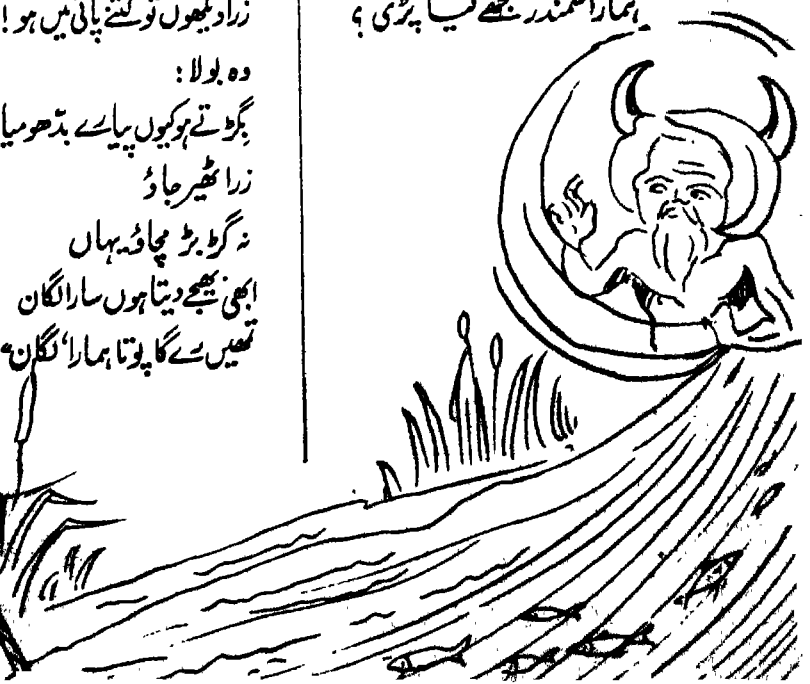 ہمارا سمندر تجھے کیا پڑی ؟
زرا دیکھوں تو کتنے پانی میں ہو !
وہ بولا :
بگڑتے ہو کیوں پیارے بدّھو میا
زرا ٹھیر جاؤ
نہ گڑبڑ مچاؤ یہاں
ابھی بھیجے دیتا ہوں سارا لگان
تمھیں دے گا پوتا ہمارا ‘لگان’